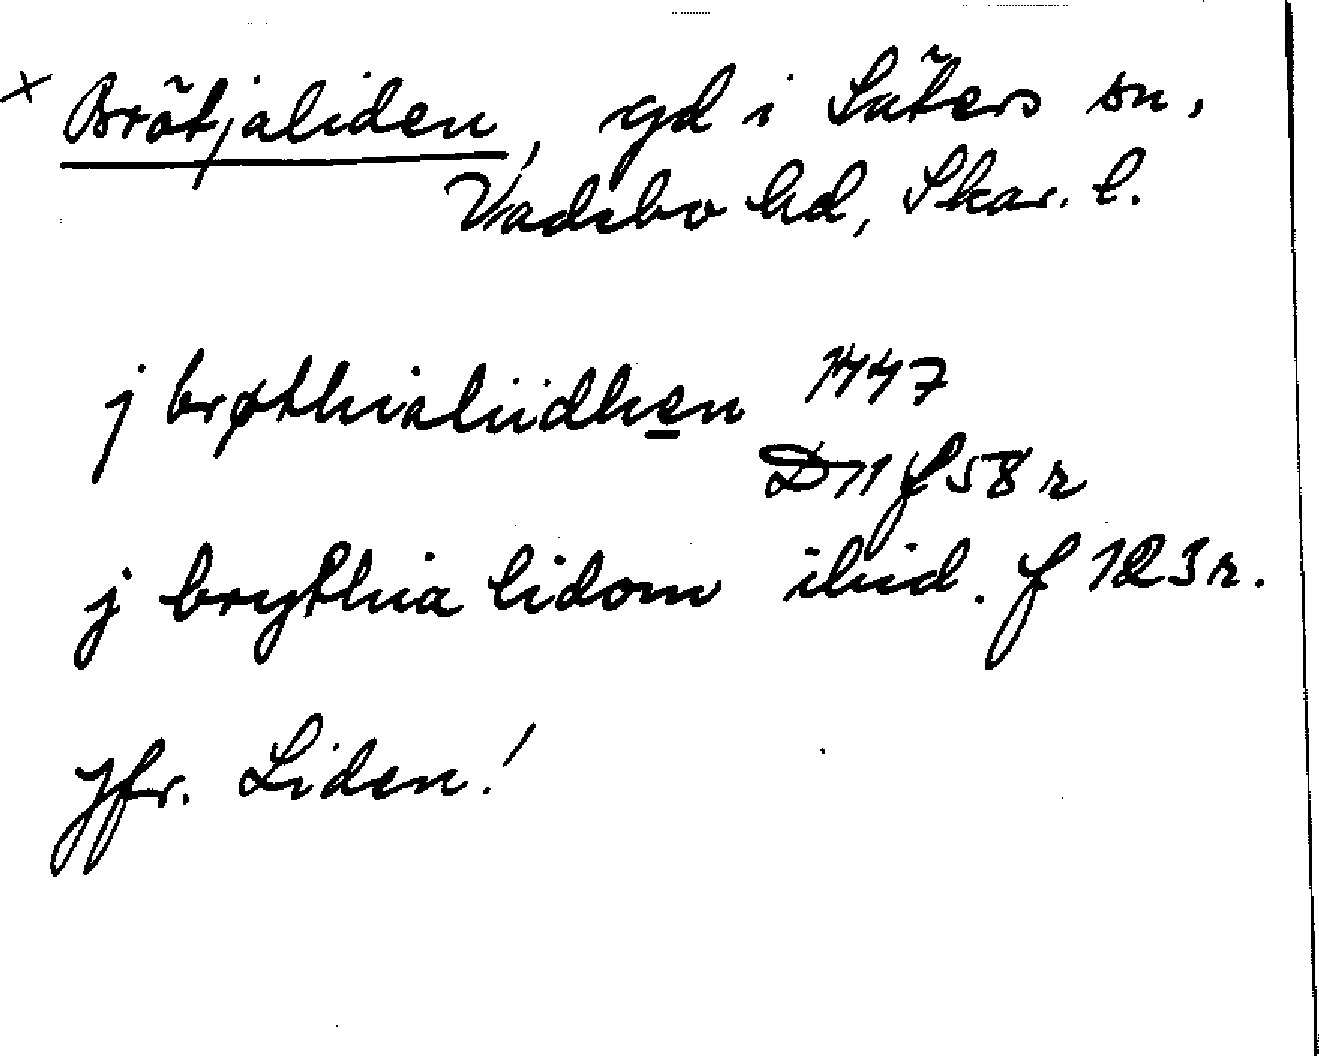 × Brötjaliden, gd i Säters sn,
Vadsbo hd, Skar. l.
j brøthialiidhen 1447
D 11 f 58 r
j brythia lidom ibid. f 123 r.
Jfr. Liden!